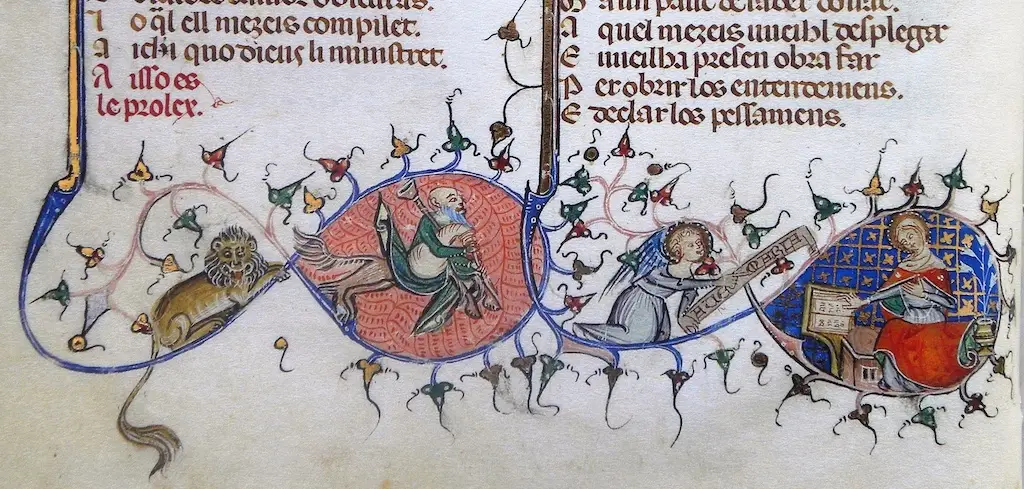 I oq̃l ell mezeis compilet.
A ichi quo dieus li ministret.
A isso es
le prolex.
A quel mezeis uueilh desplegar
E uueilha presen obra far
P er obrir los entendemens.
E declar los pessamens.
MARIA